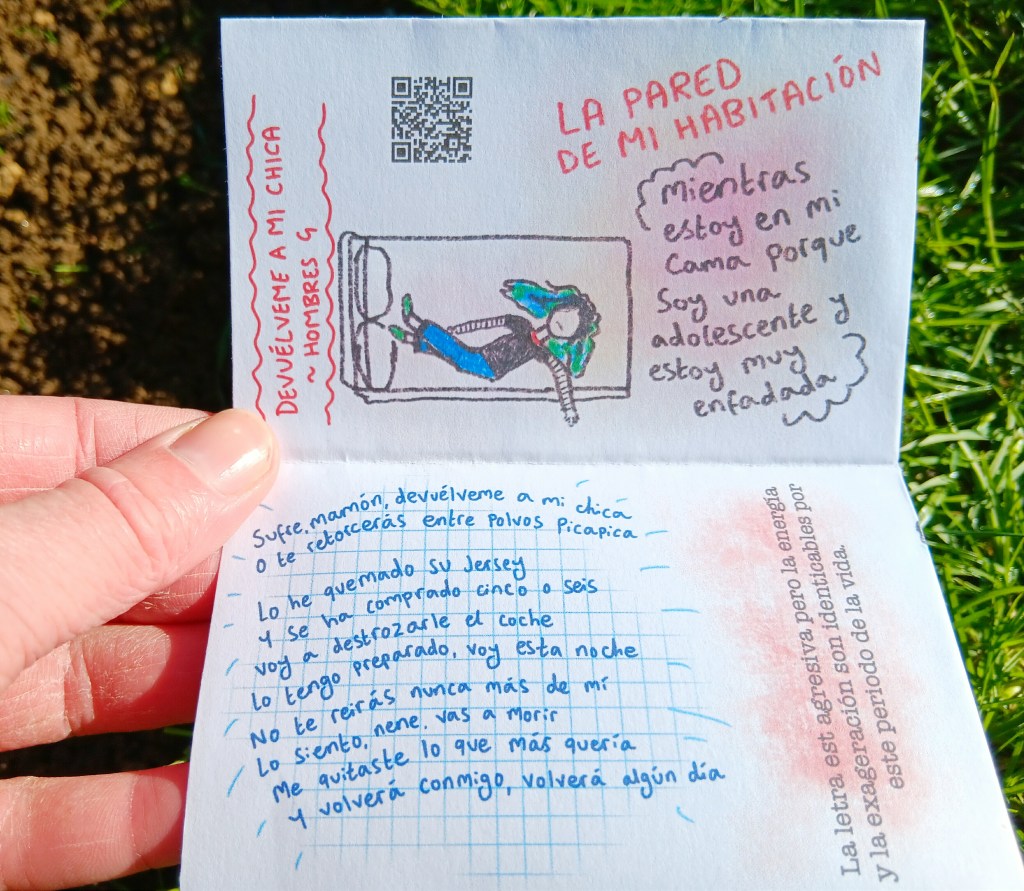 DEVUÉLVEME A MI CHICA
~ HOMBRES G
LA PARED
DE MI HABITACIÓN
Mientras
estoy en mi
Cama porque
Soy una
adolescente y
estoy muy
enfadada
Sufre, mamón, devuélveme a mi chica
O te retorcerás entre Polvos Picapica
Lo he quemado su Jersey
Y se ha comprado cinco o seis
voy a destrozarle el coche
Lo tengo preparado, voy esta noche
No te reirás nunca más de mí
Lo siento, nene, vas a morir
Me quitaste lo que más quería
Y volverá conmigo, volverá algún día
La letra est agresiva pero la energía
y la exageración son identicables por
este periodo de la vida.